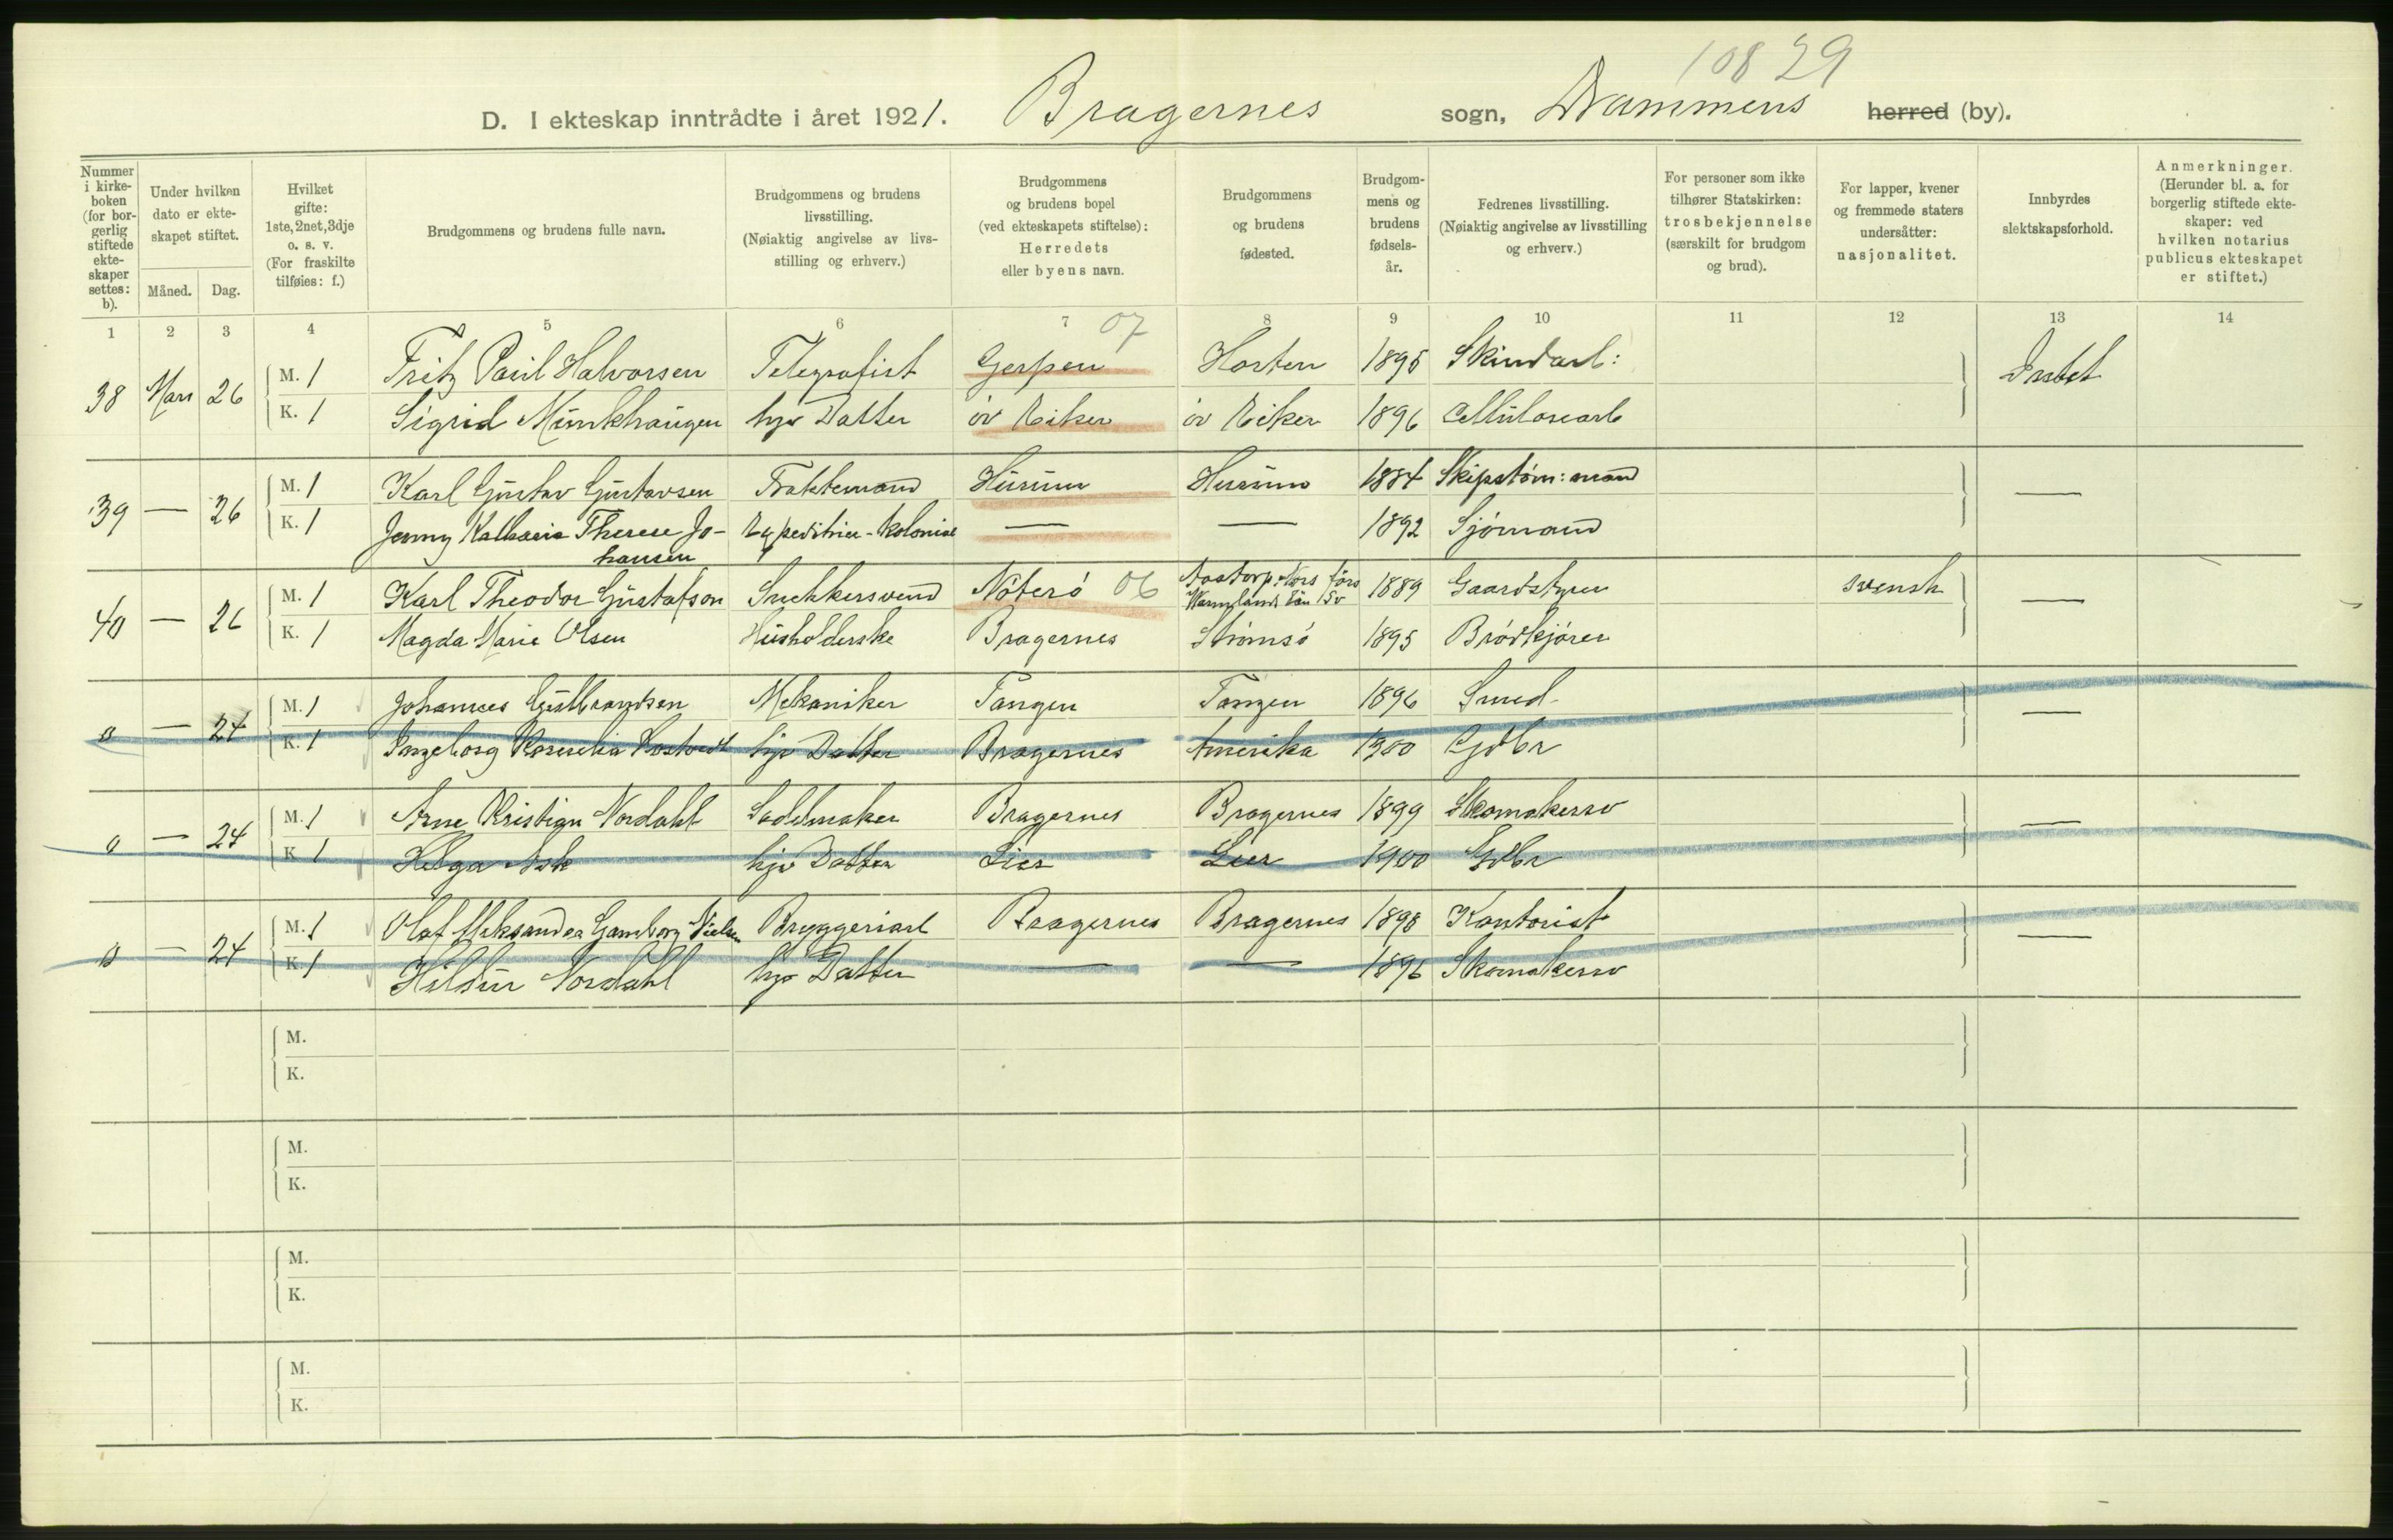 108 29
D. I ekteskap inntrådte i året 1921. Bragernes sogn, Drammens herred (by).
Nummer i kirke-boken (for bor-gerlig stiftede ekte-skaper settes: b).
Under hvilken dato er ekte-skapet stiftet.
Måned. Dag.
Hvilket gifte: 1ste, 2net, 3dje o. s. v. (For fraskilte tilføies: f.)
Brudgommens og brudens fulle navn.
Brudgommens og brudens livsstilling. (Nøiaktig angivelse av livs-stilling og erhverv.)
Brudgommens og brudens bopel (ved ekteskapets stiftelse): Herredets eller byens navn.
Brudgommens og brudens fødested.
Brudgom-mens og brudens fødsels-år.
Fedrenes livsstilling. (Nøiaktig angivelse av livsstilling og erhverv.)
For personer som ikke tilhører Statskirken: trosbekjennelse (særskilt for brudgom og brud).
For lapper, kvener og fremmede staters undersåtter: nasjonalitet.
Innbyrdes slektskapsforhold.
Anmerkninger. (Herunder bl. a. for borgerlig stiftede ekte-skaper: ved hvilken notarius publicus ekteskapet er stiftet.)
1 2 3 4 5 6 7 8 9 10 11 12 13 14
07
38 Mars 26 M. 1 Fritz Paul Halvorsen Telegrafist Gerpen Horten 1895 Skindarb: Intet
K. 1 Sigrid Munkhaugen hjv Datter öv Eiker öv Eiker 1896 Cellulosearb
39 — 26 M. 1 Karl Gustav Gustavsen Fraktemand Hurum Hurum 1884 Skipstøm:mand —
K. 1 Jenny Katharia Therese Jo-hansen Expeditrice-kolonial — — 1892 Sjömand
40 — 26 M. 1 Karl Theodor Gustafson Snekkersvend Nöterö 06 Aastorp Nors förs Wermlands län Sv 1889 Gaardstyrer svensk —
K. 1 Magda Marie Olsen Husholderske Bragernes Strömsö 1895 Brödkjörer
0 — 24 M. 1 Johannes Gulbrandsen Mekaniker Tangen Tangen 1896 Smed —
K. 1 Ingeborg hjv Datter Bragernes Amerika 1900 Gdbr
0 — 24 M. 1 Arne Kristian Nordahl Sadelmaker Bragernes Bragernes 1899 Skomakersv —
K 1 Helga Ask hjv Datter Lier Lier 1900 Gdbr
0 — 24 M. 1 Olaf Aleksander Gamborg Nielsen Bryggeriarb Bragernes Bragernes 1898 Kontorist —
K. 1 Hildur Nordahl hjv Datter — — 1896 Skomakersv
M.
K.
M.
K.
M.
K.
M.
K.